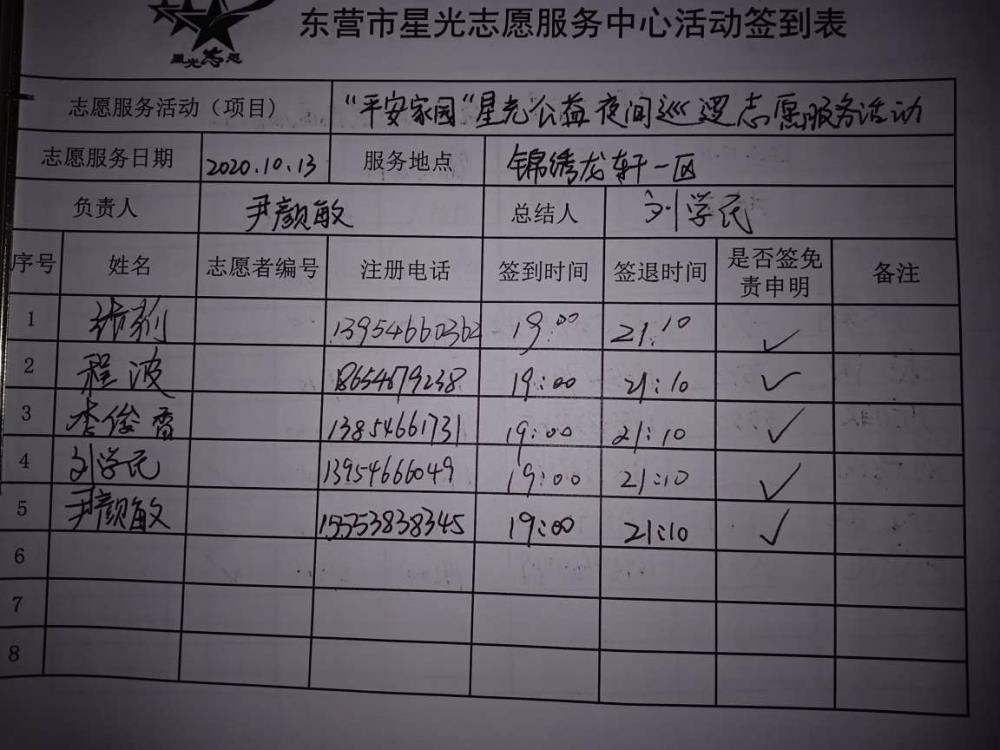 星光志愿
东营市星光志愿服务中心活动签到表
志愿服务活动（项目） "平安家园"星光公益夜间巡逻志愿服务活动
志愿服务日期 2020.10.13 服务地点 锦绣龙轩一区
负责人 尹颜敏 总结人 刘学民
序号 姓名 志愿者编号 注册电话 签到时间 签退时间 是否签免责申明 备注
1 13954660362 19:00 21:10 ✓
2 程波 18654879238 19:00 21:10 ✓
3 李俊香 13854661731 19:00 21:10 ✓
4 刘学民 13954666049 19:00 21:10 ✓
5 尹颜敏 15553838345 19:00 21:10 ✓
6
7
8